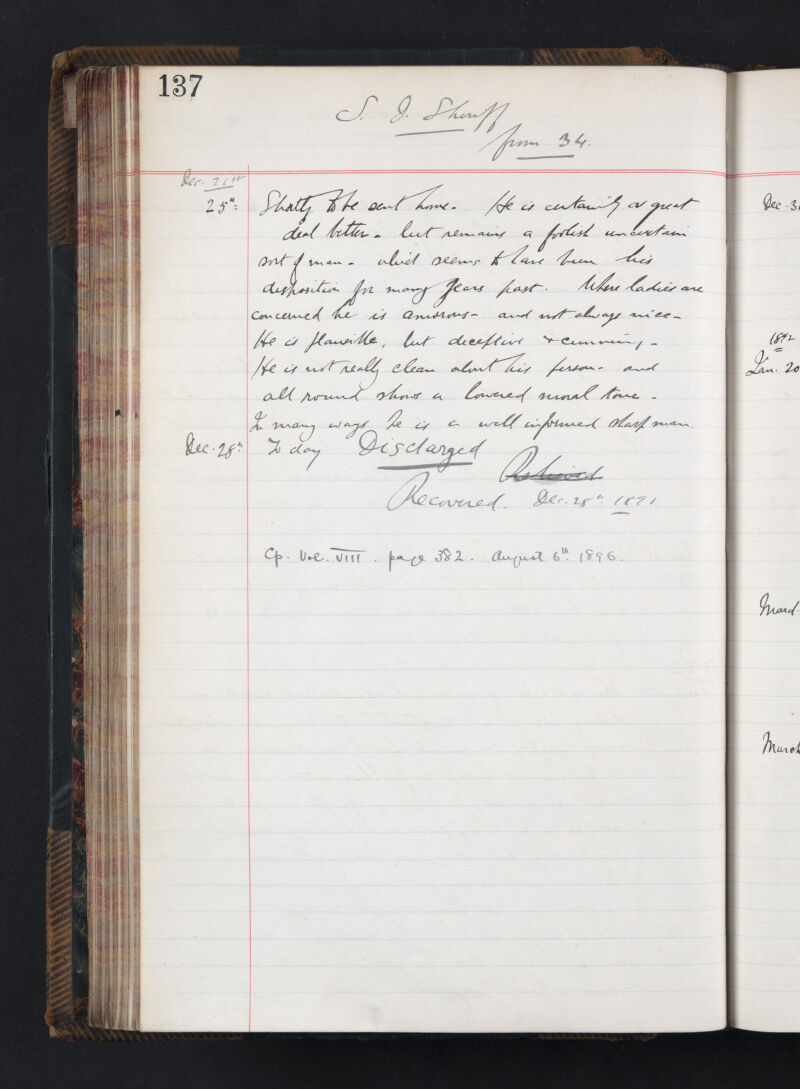 137
S. J. Sheriff
from 34.
Dec. 21st
25th Shortly to be sent home - He is certainly a great
deal better - but remains a foolish uncertain
sort of man - which seems to have been his
disposition for many years past. Where ladies are
concerned he is amorous - and not always nice -
He is plausible, but deceptive & cunning -
He is not really clean about his person - and
all round shows a lowered moral tone -
In many ways he is a well informed sharp man.
Dec. 28th To day Discharged
Relieved
Recovered. Dec. 28th 1891
Cp. Vol. VIII. page 382. August 6th 1896.
Dec. 3
1892
Jan. 20
March
March